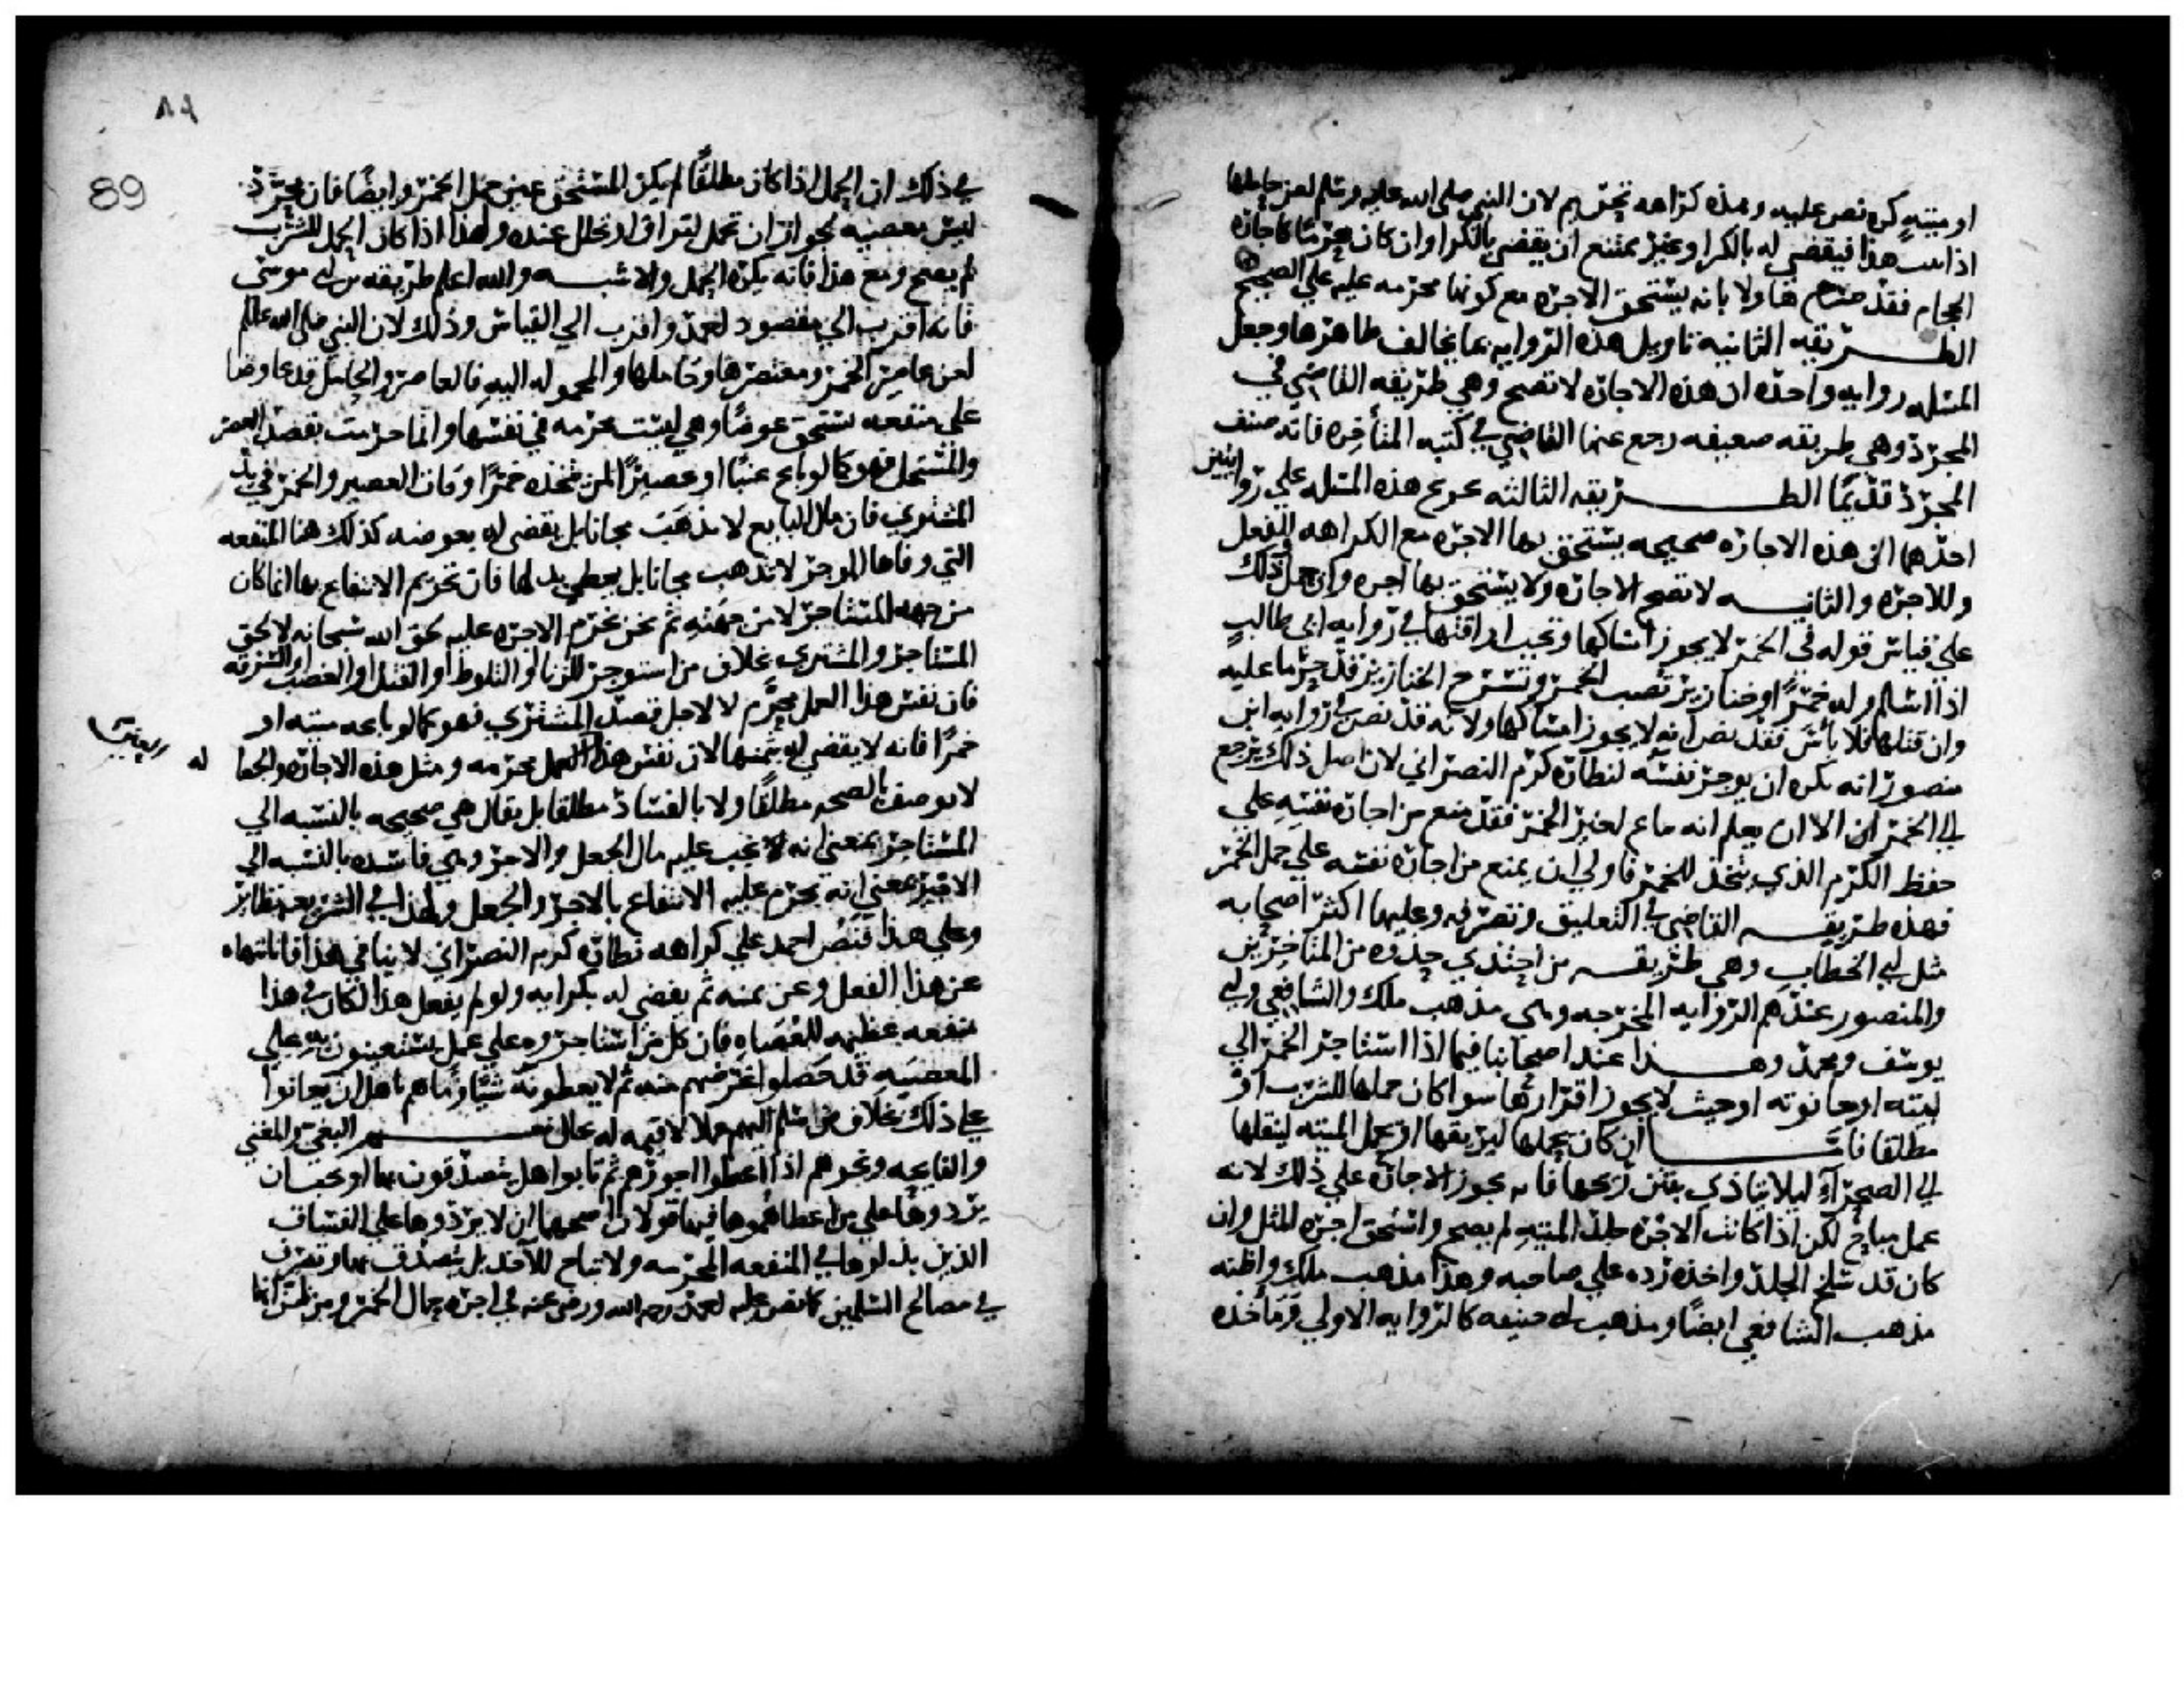 او ميتةٍ كره نص عليه وهذه كراهه تحريم لان النبي صلى الله عليه وسلم لعن حاملها
اذا ثبت هذا فيقضي له بالكرا وغير ممتنع ان يقضي بالكرا وان كان محرما كاجاره
الحجام فقد صرح هاولا بانه يستحق الاجره مع كونها محرمه عليه علي الصحيح
الطريقه الثانيه تاويل هذه الروايه بما يخالف ظاهرها وجعل
المسله روايه واحده ان هذه الاجاره لا تصح وهي طريقه القاضي في
المجرد وهي طريقه ضعيفه رجع عنها القاضي في كتبه المتأخره فانه صنف
المجرد قديما الطريقه الثالثه تخريج هذه المسله علي روايتين
احدهما ان هذه الاجاره صحيحه يستحق بها الاجره مع الكراهه للفعل
وللاجره والثانيه لا تصح الاجاره ولا يستحق بها اجره وان حمل ذلك
علي قياس قوله في الخمر لا يجوز امساكها وتجب اراقتها في روايه ابي طالب
اذا اسلم وله خمرا او خنازير تصب الخمر وتسرح الخنازير قد حرما عليه
وان قتلها فلا بأس فقد نص انه لا يجوز امساكها ولانه قد نص في روايه ابن
منصور انه يكره ان يوجر نفسه لنطاره كرم النصراني لان اصل ذلك يرجع
الي الخمر الا ان يعلم انه يباع لغير الخمر فقد منع من اجاره نفسه علي
حفظ الكرم الذي يتخذ للخمر فاولي ان يمنع من اجاره نفسه علي حمل الخمر
فهذه طريقه القاضي في التعليق وتصرفه وعليها اكثر اصحابه
مثل ابي الخطاب وهي طريقه من احتذي حذوه من المتاخرين
والمنصور عندهم الروايه المخرجه وهي مذهب ملك والشافعي وابي
يوسف ومحمد وهذا عند اصحابنا فيما اذا استاجر الخمر الي
بيته او حانوته او حيث لا يجوز اقرارها سوا كان حملها للشرب او
مطلقا فاما ان كان يحملها ليريقها او يحمل الميته لينقلها
الي الصحرآء ليلا يتاذي بنتن ريحها فانه يجوز الاجاره علي ذلك لانه
عمل مباح لكن اذا كانت الاجره جلد الميته لم يصح واستحق اجره المثل وان
كان قد سلخ الجلد واخذه رده علي صاحبه وهذا مذهب ملك واظنه
مذهب الشافعي ايضا ومذهب ابي حنيفه كالروايه الاولي ومأخذه
٨٩
89
في ذلك ان الحمل اذا كان مطلقا لم يكن المستحق عين حمل الخمر وايضا فان مجرد
ليس بمعصيه لجواز ان تحمل لتراق او تخلل عنده ولهذا اذا كان الحمل للشرب
لم يصح ومع هذا فانه يكره الحمل والاشبه والله اعلم طريقه بن ابي موسي
فانه اقرب الي مقصود احمد واقرب الي القياس وذلك لان النبي صلى الله عليه وسلم
لعن عاصر الخمر ومعتصرها وحاملها والمحموله اليه فالعاصر والحامل قد عاوضا
علي منفعه تستحق عوضا وهي ليست محرمه في نفسها وانما حرمت بقصد المعتصر
والمستحمل فهو كما لو باع عنبا او عصيرا لمن يتخذه خمرا وفات العصير والخمر في يد
المشتري فان مال البايع لا يذهب مجانا بل يقضي له بعوضه كذلك هنا المنفعه
التي وفاها الموجر لا تذهب مجانا بل يعطي بدلها فان تحريم الانتفاع بها انما كان
من جهه المستاجر لا من جهته ثم نحن نحرم الاجره عليه لحق الله سبحانه لا لحق
المستاجر والمشتري بخلاف من استوجر للزنا او التلوط او القتل او الغصب او السرقه
فان نفس هذا العمل محرم لا لاجل قصد المشتري فهو كما لو باعه ميته او
خمرا فانه لا يقضي له بثمنها لان نفس هذا العمل محرمه ومثل هذه الاجاره والجعاله
لا يوصف بالصحه مطلقا ولا بالفساد مطلقا بل يقال هي صحيحه بالنسبه الي
المستاجر بمعني انه يجب عليه مال الجعل والاجر وهي فاسده بالنسبه الي
الاجير بمعني انه يحرم عليه الانتفاع بالاجر والجعل ولهذا في الشريعه نظاير
وعلي هذا فنص احمد علي كراهه نطاره كرم النصراني لا ينافي هذا فانا ننهاه
عن هذا الفعل وعن ثمنه ثم يقضي له بكرايه ولو لم يفعل هذا لكان في هذا
منفعه عظيمه للعصاه فان كل من استاجروه علي عمل يستعينون به علي
المعصيه قد حصلوا غرضهم منه ثم لا يعطونه شيا وما هم باهل ان يعانوا
علي ذلك بخلاف من سلم اليهم عملا لا قيمه له بحال نعم البغي والمغني
والنايحه ونحوهم اذا اعطوا اجورهم ثم تابوا هل يتصدقون بها او يجب ان
يردوها علي من اعطاهموها فيها قولان اصحهما ان لا يردوها علي الفساق
الذين بذلوها في المنفعه المحرمه ولا تباح للآخذ بل يتصدق بها وتصرف
في مصالح المسلمين كما نص عليه احمد رحمه الله ورضي عنه في اجره حمال الخمر ومن ظن انها